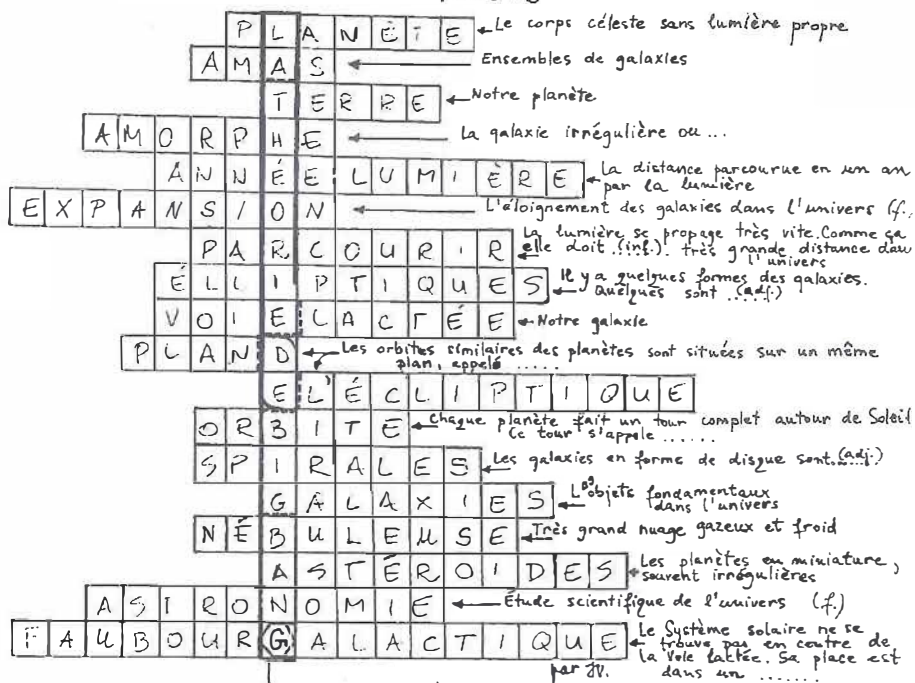 PLANÈTE Le corps céleste sans lumière propre
AMAS Ensembles de galaxies
TERRE Notre planète
AMORPHE La galaxie irrégulière ou ...
ANNÉE LUMIÈRE La distance parcourue en un an
par la lumière
EXPANSION L'éloignement des galaxies dans l'univers (f.
PARCOURIR La lumière se propage très vite. Comme ça
elle doit ..(inf.). très grande distance dau
l'univers
ÉLLIPTIQUES Il y a quelques formes des galaxies.
Quelques sont .....(adj.)
VOIE LACTÉE Notre galaxie
PLAN D Les orbites similaires des planètes sont situées sur un même
plan, appelé .....
E L'ÉCLIPTIQUE
ORBITE Chaque planète fait un tour complet autour de Soleil
Ce tour s'appele ......
SPIRALES Les galaxies en forme de disque sont.(adj.)
GALAXIES Les objets fondamentaux
dans l'univers
NÉBULEUSE Très grand nuage gazeux et froid
ASTÉROIDES Les planètes en miniature,
souvent irrégulières
ASTRONOMIE Étude scientifique de l'univers (f.)
FAUBOURG GALACTIQUE Le Système solaire ne se
trouve pas en centre de
la Voie lactée. Sa place est
dans un .......
par JV.